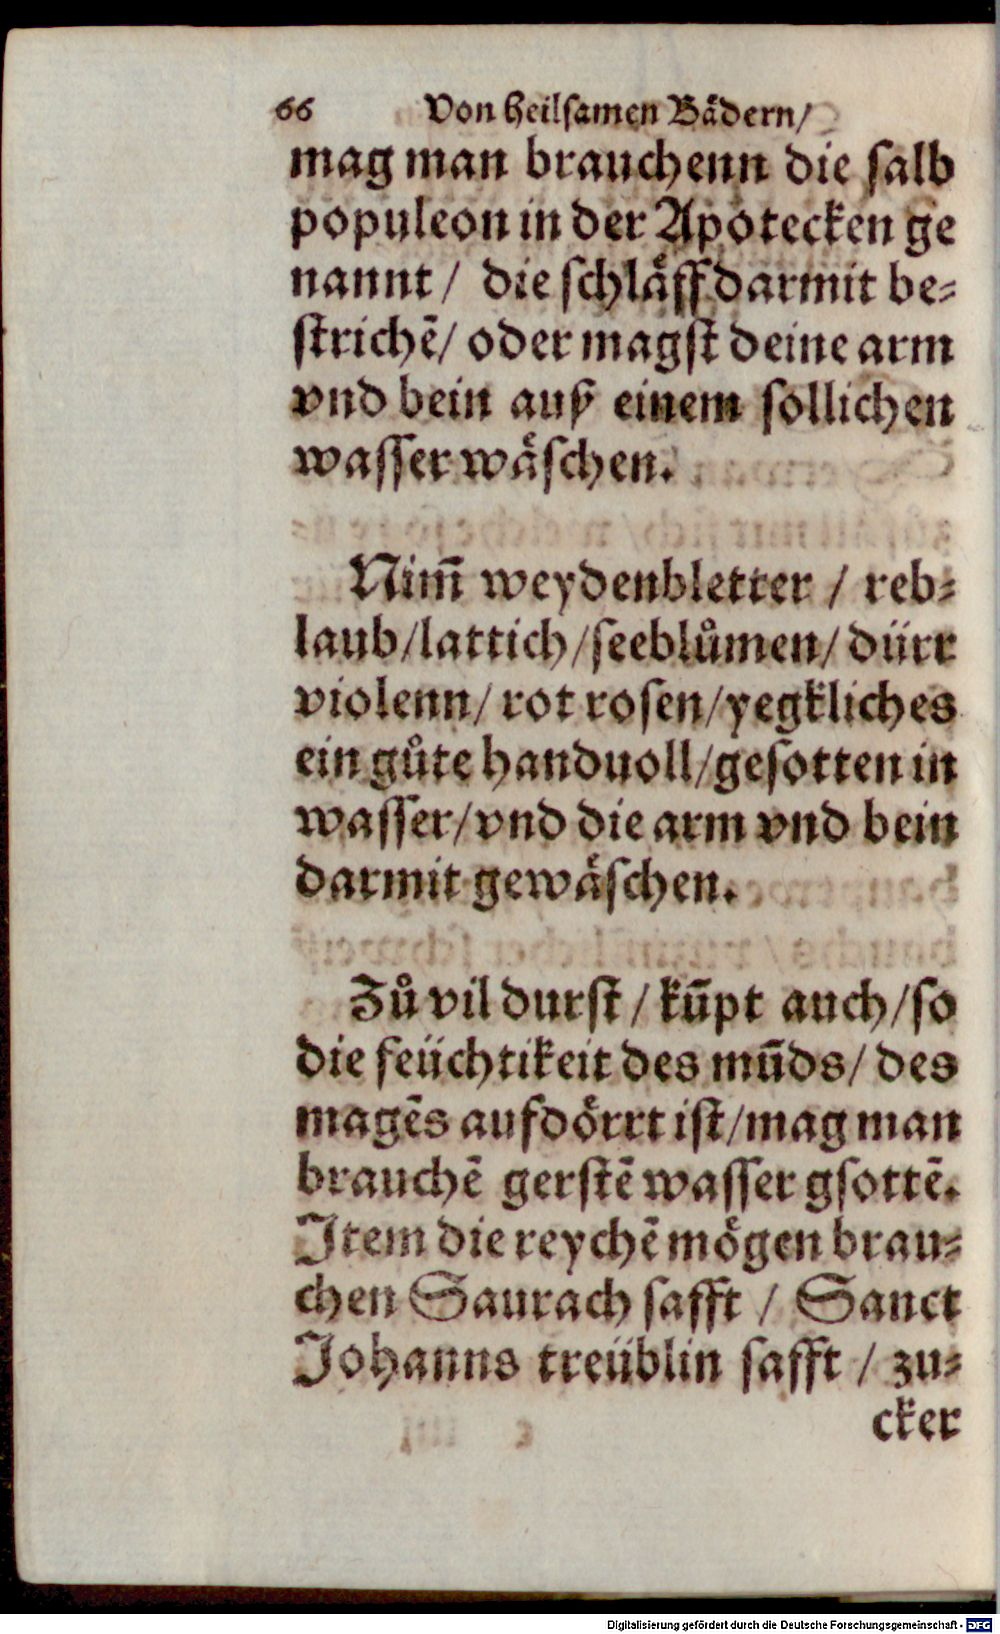 66 Von heilsamen Bädern/
mag man brauchenn die salb
populeon in der Apotecken ge
nannt / die schlaͤff darmit be⸗
strichẽ/ oder magst deine arm
vnd bein auß einem sollichen
wasser waͤschen.
Nim̃ weydenbletter / reb⸗
laub/lattich/seeblůmen/ dürr
violenn/ rot rosen/yegkliches
ein gůte handuoll/gesotten in
wasser/vnd die arm vnd bein
darmit gewaͤschen.
Zů vil durst / kũpt auch/so
die feüchtikeit des mũds/ des
magẽs aufdoͤrrt ist/mag man
brauchẽ gerstẽ wasser gsottẽ.
Item die reychẽ moͤgen brau⸗
chen Saurach safft / Sanct
Johanns treüblin safft / zu⸗
cker
Digitalisierung gefördert durch die Deutsche Forschungsgemeinschaft - DFG